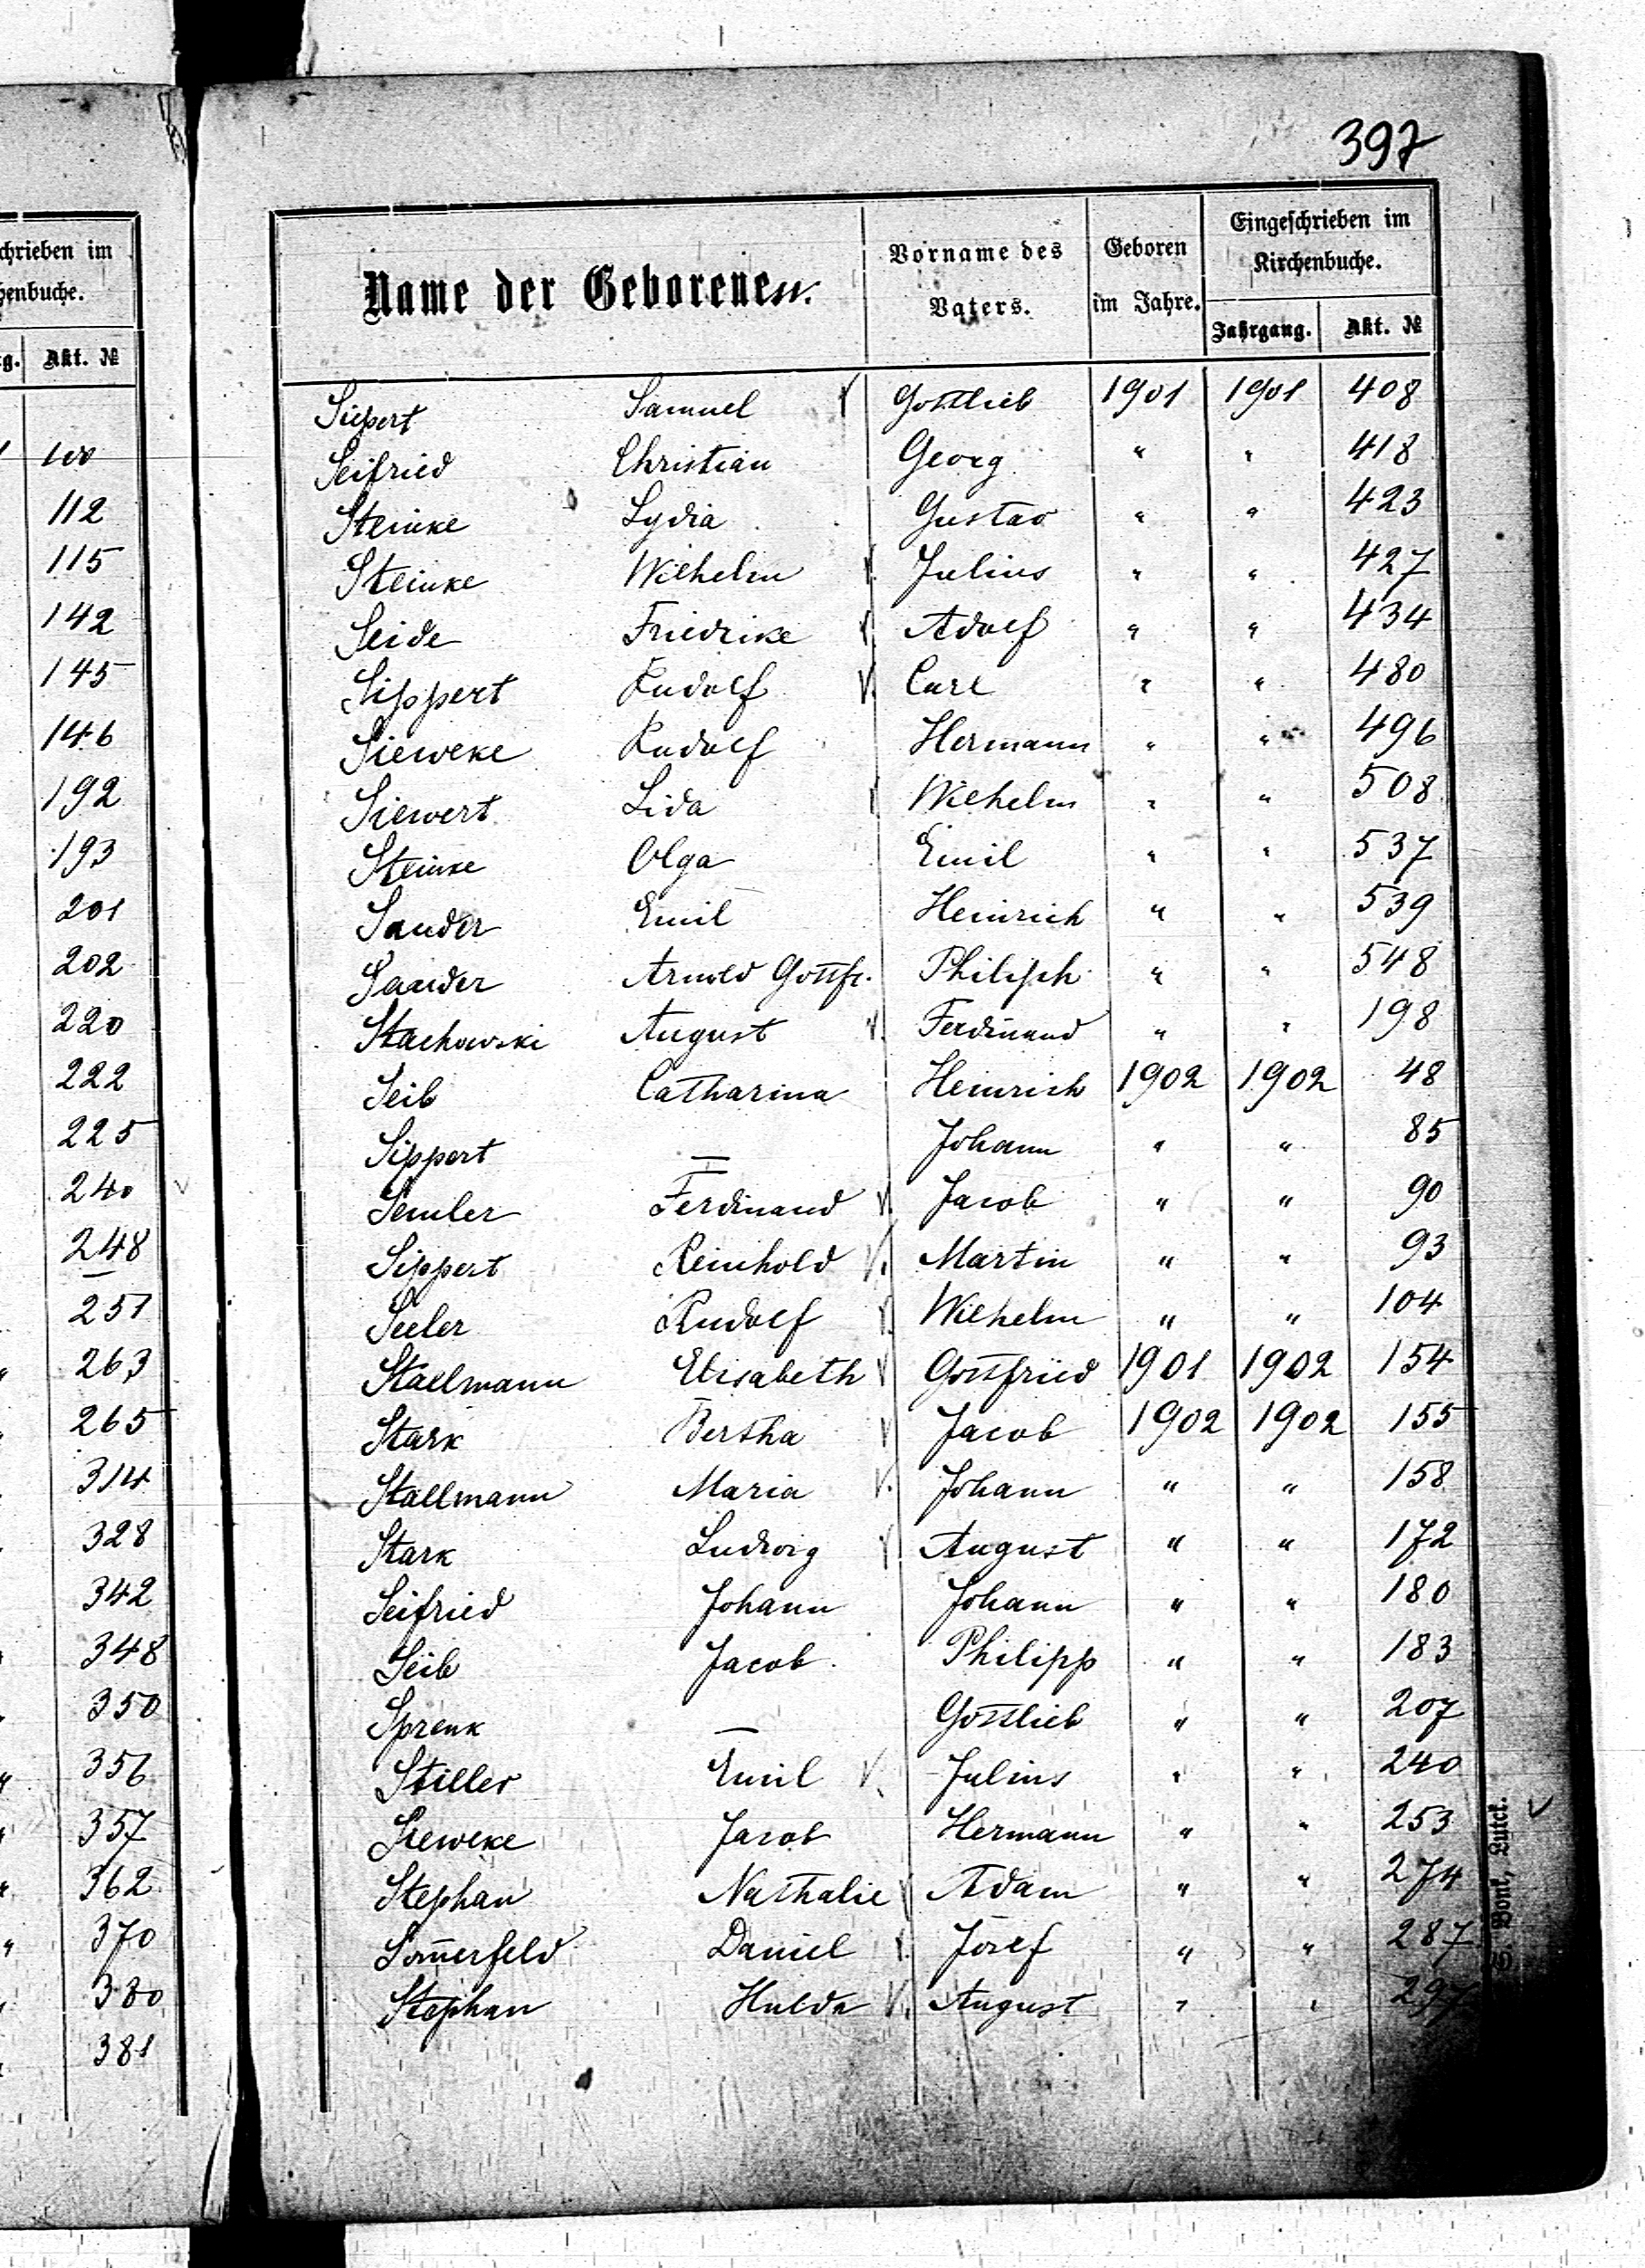 chrieben im
henbuche.
g. Akt. №
100
112
115
142
145
146
192
193
201
202
220
222
225
240
248
251
263
265
314
328
342
348
350
356
357
362
370
380
381
397
Name der Geborenen.
Vorname des Vaters.
Geboren im Jahre.
Eingeschrieben im Kirchenbuche.
Jahrgang. Akt. №
Siepert Samuel V Gottlieb 1901 1901 408
Seifried Christian Georg " " 418
Steinke Lydia Gustav " " 423
Steinke Wilhelm V. Julius " " 427
Seide Friedrike V. Adolf " " 434
Sippert Rudolf V. Carl " " 480
Sieweke Rudolf Hermann " " 496
Siewert Lida V Wilhelm " " 508
Steinke Olga Emil " " 537
Sauder Emil Heinrich " " 539
Sauder Arnold Gottfr. Philiph " " 548
Stachowski August V. Ferdinand " " 198
Seib Catharina Heinrich 1902 1902 48
Sippert — Johann " " 85
Semler Ferdinand V. Jacob " " 90
Sippert Reinhold V. Martin " " 93
Seeler Rudolf V. Wilhelm " " 104
Stallmann Elisabeth V Gottfried 1901 1902 154
Stark Bertha V Jacob 1902 1902 155
Stallmann Maria V. Johann " " 158
Stark Ludwig V August " " 172
Seifried Johann Johann " " 180
Seib Jacob Philipp " " 183
Sprenk — Gottlieb " " 207
Stiller Emil V. Julius " " 240
Sieweke Jacob Hermann " " 253
Stephan Nathalie V Adam " " 274
Som̄erfeld Daniel V. Josef " " 287
Stephan Hulda V. August " " 297
S. Bonk, Lutck.